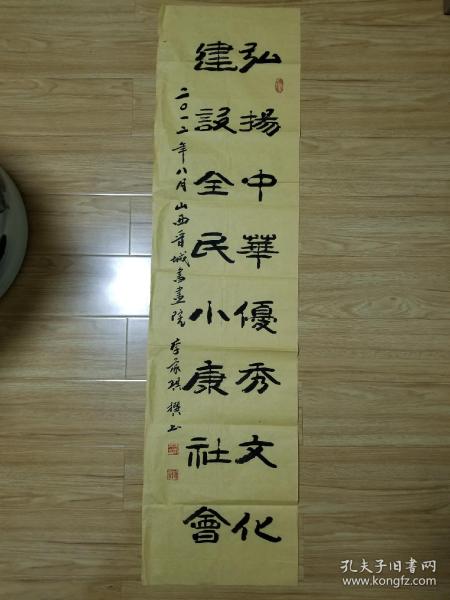 弘揚中華優秀文化
建設全民小康社會
二〇一二年八月山西晉城書畫院李家琪撰书
孔夫子旧书网
www.kongfz.com